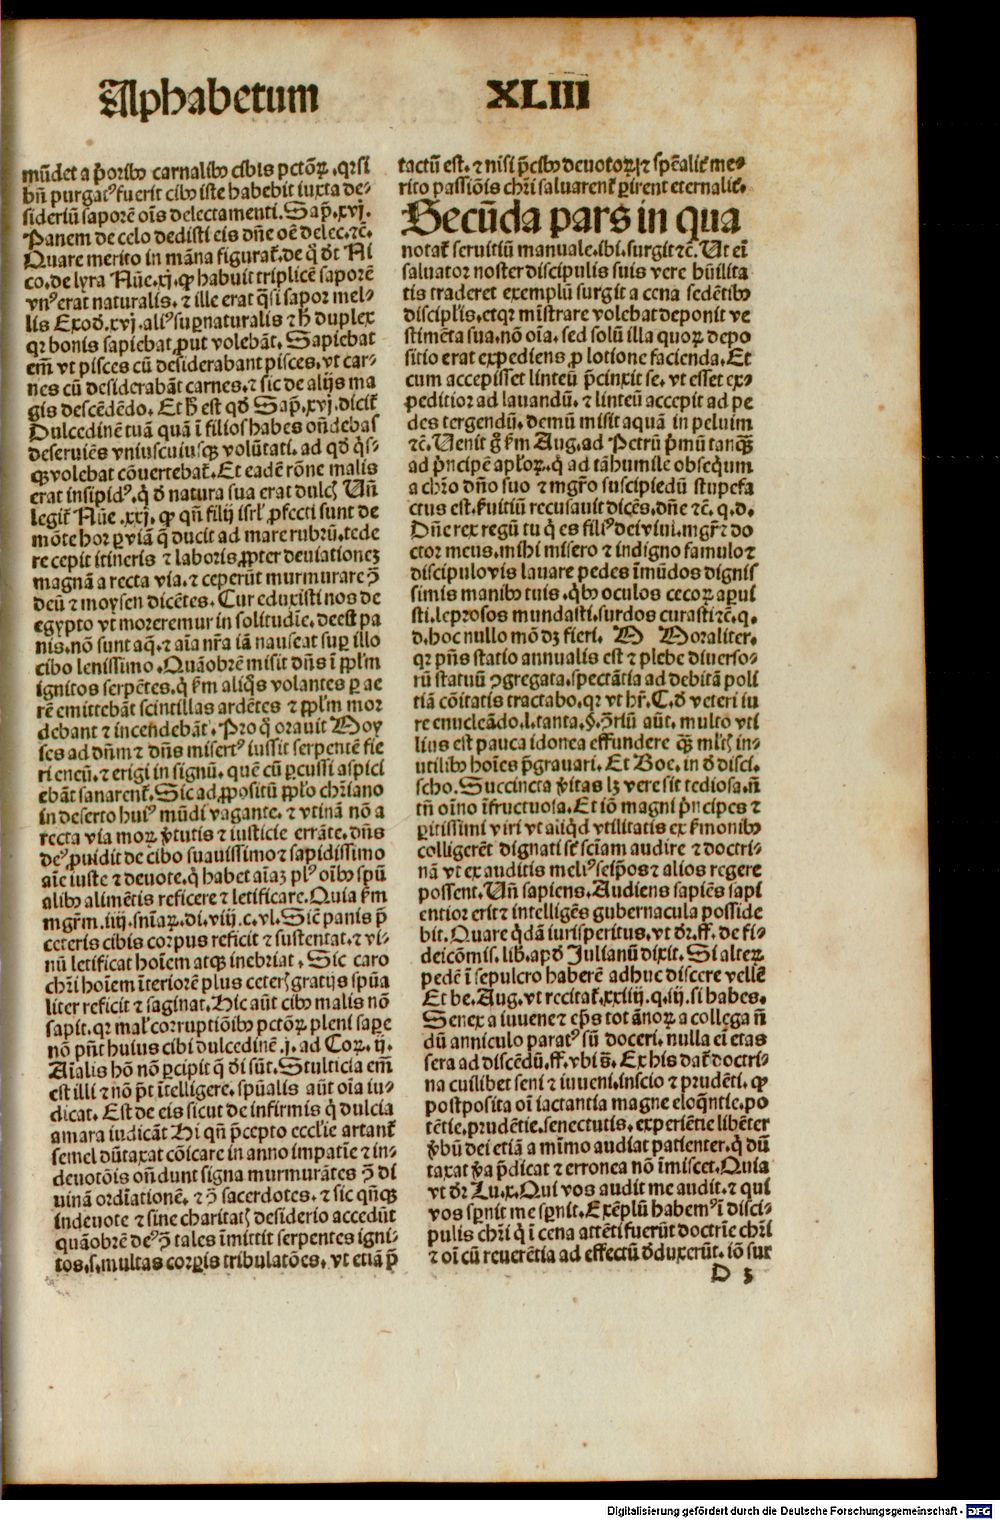 Alphabetum XLIII
mūdet a p̄orib⁹ carnalib⁹ cibis pctōꝝ .qꝛsi
bn̄ purgat⁹ fuerit cib⁹ iste habebit iuxta de⸗
sideriū saporē oīs delectamenti. Sap̄. xvj.
Panem de celo dedisti eis dn̄e oē delec. ⁊c̄.
Quare merito in māna figuraṫ. de q̇ d̄t Ni
co. de lyra Nūe. xj. ꝙ habuit triplicē saporē
vn⁹ erat naturalis. ⁊ ille erat q̇si sapor mel⸗
lis Exod̄. xvj. ali⁹ suꝑnaturalis ⁊ h̄ duplex
qꝛ bonis sapiebat ꝓut volebāt. Sapiebat
em̄ vt pisces cū desiderabant pisces. vt car⸗
nes cū desiderabāt carnes. ⁊ sic de alijs ma
gis descēdēdo. Et h̄ est qd̄ Sap̄. xvj. diciṫ
Dulcedinē tuā quā ī filios habes on̄debas
deseruiēs vniuscuiusꝗ volūtati. ad qd̄ q̇s⸗
ꝗ volebat cōuertebaṫ. Et eadē rōne malis
erat insipid⁹. q̇ d̄ natura sua erat dulcꝭ Un̄
legiṫ Nūe. xxj. ꝙ qn̄ filij isrl̓ ꝓfecti sunt de
mōte hor ꝑ viā q̄ ducit ad mare rubrū. tede
re cepit itineris ⁊ laboris ꝓpter deuiationeꝫ
magnā a recta via. ⁊ ceperūt murmurare ꝯ̄
deū ⁊ moysen dicētes. Cur eduxisti nos de
egypto vt moreremur in solitudīe. deest pa
nis. nō sunt aq̄. ⁊ aīa nr̄a iā nauseat suꝑ illo
cibo leuissimo. Quāobrē misit dn̄s ī ppl̓m
ignitos serpētes. q̇ ẜm aliq̇s volantes ꝑ ae
rē emittebāt scintillas ardētes ⁊ ppl̓m mor
debant ⁊ incendebāt. Pro q̇ orauit Moy
ses ad dn̄m ⁊ dn̄s misert⁹ iussit serpentē fie
ri eneū. ⁊ erigi in signū. quē cū ꝑcussi aspici
ebāt sanarenṫ. Sic ad ꝓpositū ppl̓o chr̄iano
in deserto hui⁹ mūdi vagante. ⁊ vtinā nō a
recta via moꝝ ꝟtutis ⁊ iusticie errāte. dn̄s
de⁹ ꝓuidit de cibo suauissimo ⁊ sapidissimo
aīe iuste ⁊ deuote. q̇ habet aīaꝫ pl⁹ oīb⁹ spū
alib⁹ alimētis reficere ⁊ letificare. Quia ẜm
mgr̄m. iiij. sn̄iaꝝ. di. viij. c. vl. Sic̄ panis p̄
ceteris cibis corpus reficit ⁊ sustentat. ⁊ vi⸗
nū letificat hoīem atqꝫ inebriat. Sic caro
chr̄i hoīem īteriorē plus ceterꝭ gratijs spūa
liter reficit ⁊ saginat. Hic aūt cib⁹ malis nō
sapit. qꝛ mal̓ corruptiōib⁹ pctōꝝ pleni saꝑe
nō pn̄t huius cibi dulcedinē. j. ad Coꝝ. ij.
Aīalis hō nō ꝑcipit q̄ dī sūt. Stulticia em̄
est illi ⁊ nō p̄t ītelligere. spūalis aūt oīa iu⸗
dicat. Est de eis sicut de infirmis q̇ dulcia
amara iudicāt Hi qn̄ p̄cepto eccl̓ie artanṫ
semel dūtaxat cōicare in anno impatīe ⁊ in⸗
deuotōis on̄dunt signa murmurātes ꝯ̄ di
uinā ordīationē. ⁊ ꝯ̄ sacerdotes. ⁊ sic qn̄ꝗ
indeuote ⁊ sine charitatꝭ desiderio accedūt
quāobrē de⁹ ꝯ̄ tales īmittit serpentes igni⸗
tos. s. multas corꝑis tribulatōes. vt etiā p̄
tactū est. ⁊ nisi p̄cib⁹ deuotoꝝ ⁊ spēaliṫ me⸗
rito passiōis chr̄i saluarenṫ ꝑirent eternaliṫ.
Secūda pars in qua
notaṫ seruitiū manuale. ibi. surgit ⁊c̄. Ut eī
saluator noster discipulis suis vere hūilita
tis traderet exemplū surgit a cena sedētib⁹
discipl̓is. et qꝛ mīstrare volebat deponit ve
stimēta sua. nō oīa. sed solū illa quoꝝ depo
sitio erat expediens ꝓ lotione facienda. Et
cum accepisset linteū p̄cinxit se. vt esset ex⸗
peditior ad lauandū. ⁊ linteū accepit ad pe
des tergendū. demū misit aquā in peluim
⁊c̄. Uenit g̊ ẜm Aug. ad Petrū p̄mū tanꝗ̄
ad p̄ncipē apl̓oꝝ. q̇ ad tā humile obseq̇um
a chr̄o dn̄o suo ⁊ mgr̄o suscipiēdū stupefa
ctus est. ẜuitiū recusauit dicēs. dn̄e ⁊c̄. q. d.
Dn̄e rex regū tu q̇ es fili⁹ dei viui. mgr̄ ⁊ do
ctor meus. mihi misero ⁊ indigno famulo ⁊
discipulo vis lauare pedes īmūdos dignis
simis manib⁹ tuis. q̇b⁹ oculos cecoꝝ aꝑui
sti. leprosos mundasti. surdos curasti ⁊c̄. q.
d. hoc nullo mō dꝫ fieri. M Moraliter.
qꝛ pn̄s statio annualis est ⁊ plebe diuerso⸗
rū statuū ꝯgregata. spectātia ad debitā poli
tiā cōitatis tractabo. qꝛ vt hr̄. C. d̄ veteri iu
re enucleādo. l. tanta. §. ꝯ̄triū aūt. multo vti
lius est pauca idonea effundere ꝗ̄ ml̓tꝭ in⸗
utilib⁹ hoīes p̄grauari. Et Boe. in d̄ disci.
scho. Succincta ꝟitas lꝫ vere sit tediosa. n̄
tn̄ oīno īfructuosa. Et iō magni p̄ncipes ⁊
ꝑitissimi viri vt aliq̇d vtilitatis ex ẜmonib⁹
colligerēt dignati sē sc̄iam audire ⁊ doctri⸗
nā vt ex auditis meli⁹ seip̄os ⁊ alios regere
possent. Un̄ sapiens. Audiens sapiēs sapi
entior erit ⁊ intelligēs gubernacula posside
bit. Quare q̇dā iurisperitus. vt dr̄. ff. de fi⸗
deicōmis. lib. apd̄ Julianū dixit. Si alteꝝ
pedē ī sepulcro haberē adhuc discere vellē
Et be. Aug. vt recitaṫ. xxiiij. q. iij. si habes.
Senex a iuuene ⁊ ep̄s tot ānoꝝ a collega n̄
dū anniculo parat⁹ sū doceri. nulla eī etas
sera ad discēdū. ff. vbi s̄. Ex his daṫ doctri⸗
na cuilibet seni ⁊ iuueni. inscio ⁊ prudēti. ꝙ
postposita oī iactantia magne eloq̄ntie. po
tētie. prudētie. senectutis. experiētie libēter
ꝟbū dei etiā a mīmo audiat patienter. q̇ dū
taxat ꝟa p̄dicat ⁊ erronea nō īmiscet. Quia
vt dr̄ Lu. x. Qui vos audit me audit. ⁊ qui
vos sꝑnit me sꝑnit. Exēplū habem⁹ ī disci⸗
pulis chr̄i q̇ ī cena attēti fuerūt doctrīe chr̄i
⁊ oī cū reuerētia ad effectū d̄duxerūt. iō sur
D 3
Digitalisierung gefördert durch die Deutsche Forschungsgemeinschaft - DFG